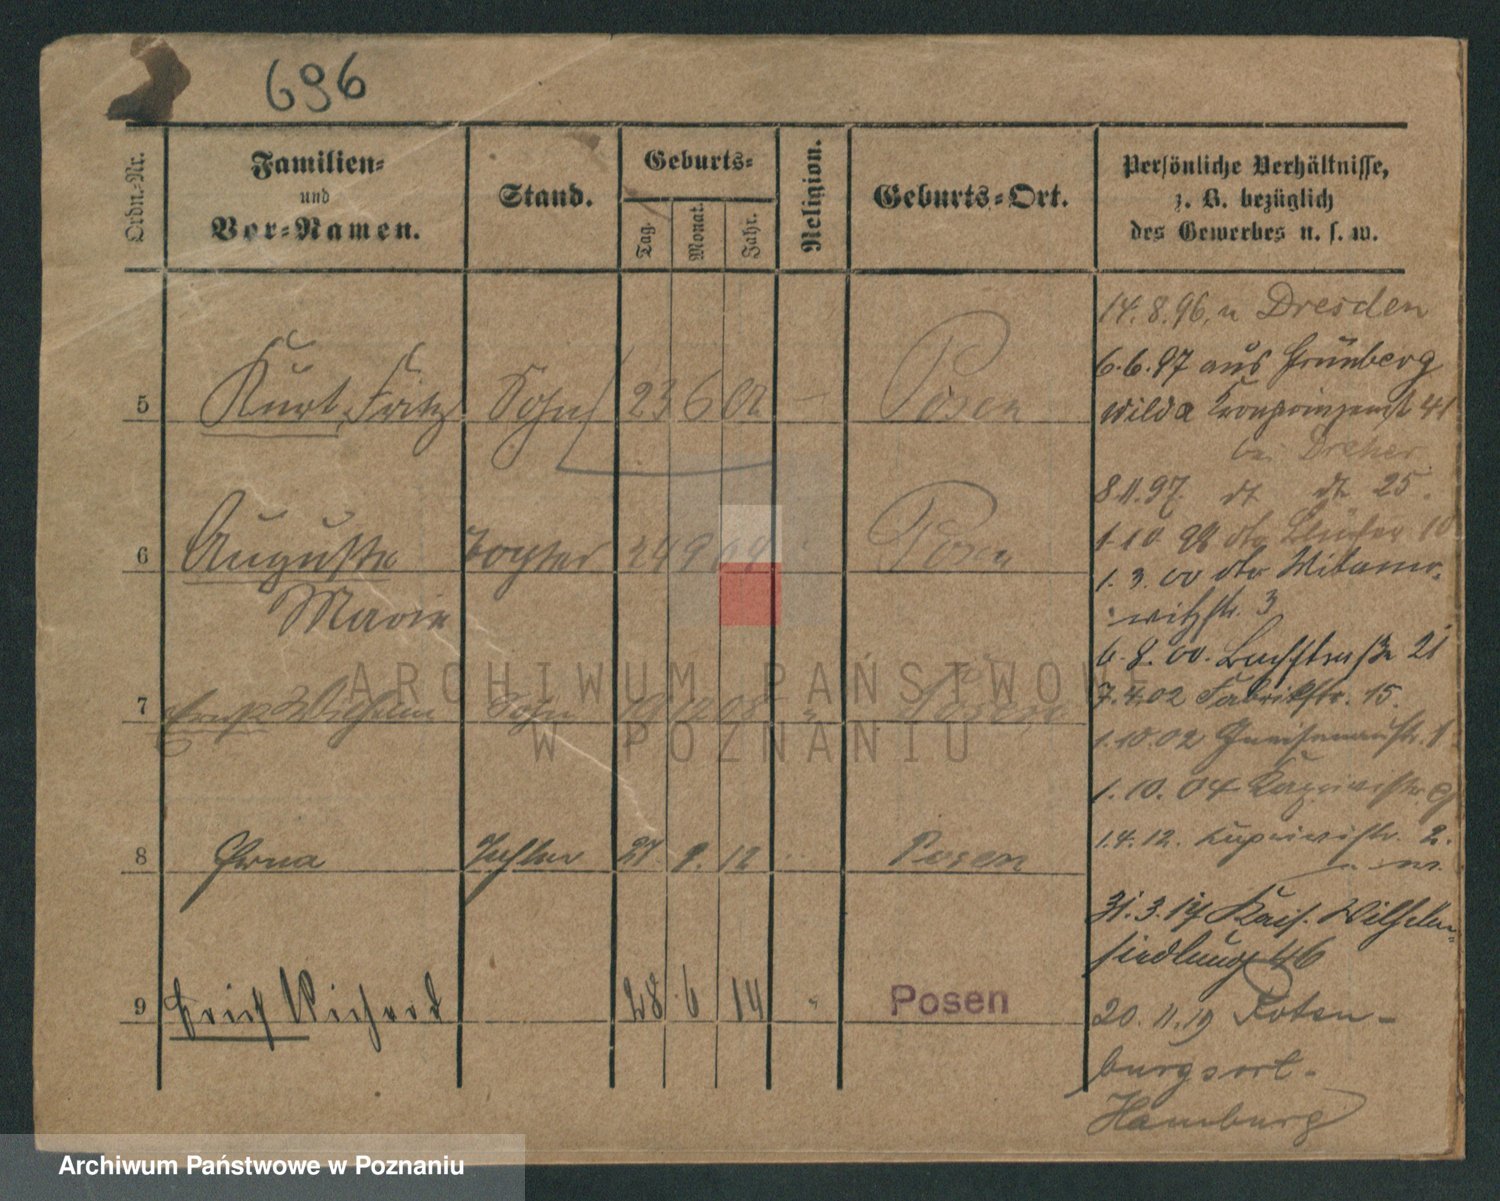 696
Ordn.-Nr.
Familien-
und
Vor-Namen.
Stand.
Geburts-
Tag.
Monat.
Jahr.
Religion.
Geburts-Ort.
Persönliche Verhältnisse,
z. B. bezüglich
des Gewerbes u. s. w.
5 Kurt Fritz Sohn 23 6 02 – Posen
6 Auguste Tochter 24 9 04 Posen
Marie
7 Ernst Wilhelm Sohn 08 Posen
8 Erna Tochter 27 9. 12 Posen
9 Erich Richard 28 6 14 " Posen
14.8.96. n Dresden
6.6.97 aus Grünberg
Wilda Kronprinzenst 41
bei Dreher
8.11.97. dt dt 25.
1.10.98 dto 10
1.3.00 dto
witzstr. 3
6.8.00. Bachstraße 21
7.4.02 Fabrikstr. 15.
1.10.02 Gneisenaustr. 1
1.10.04 Kaprivistr. 9
1.4.12. Kaprivistr. 2.
31.3.17 Kais. Wilhelm-
siedlung 46
20.11.19 Roten-
burgsort-
Hamburg
ARCHIWUM PAŃSTWOWE
W POZNANIU
Archiwum Państwowe w Poznaniu